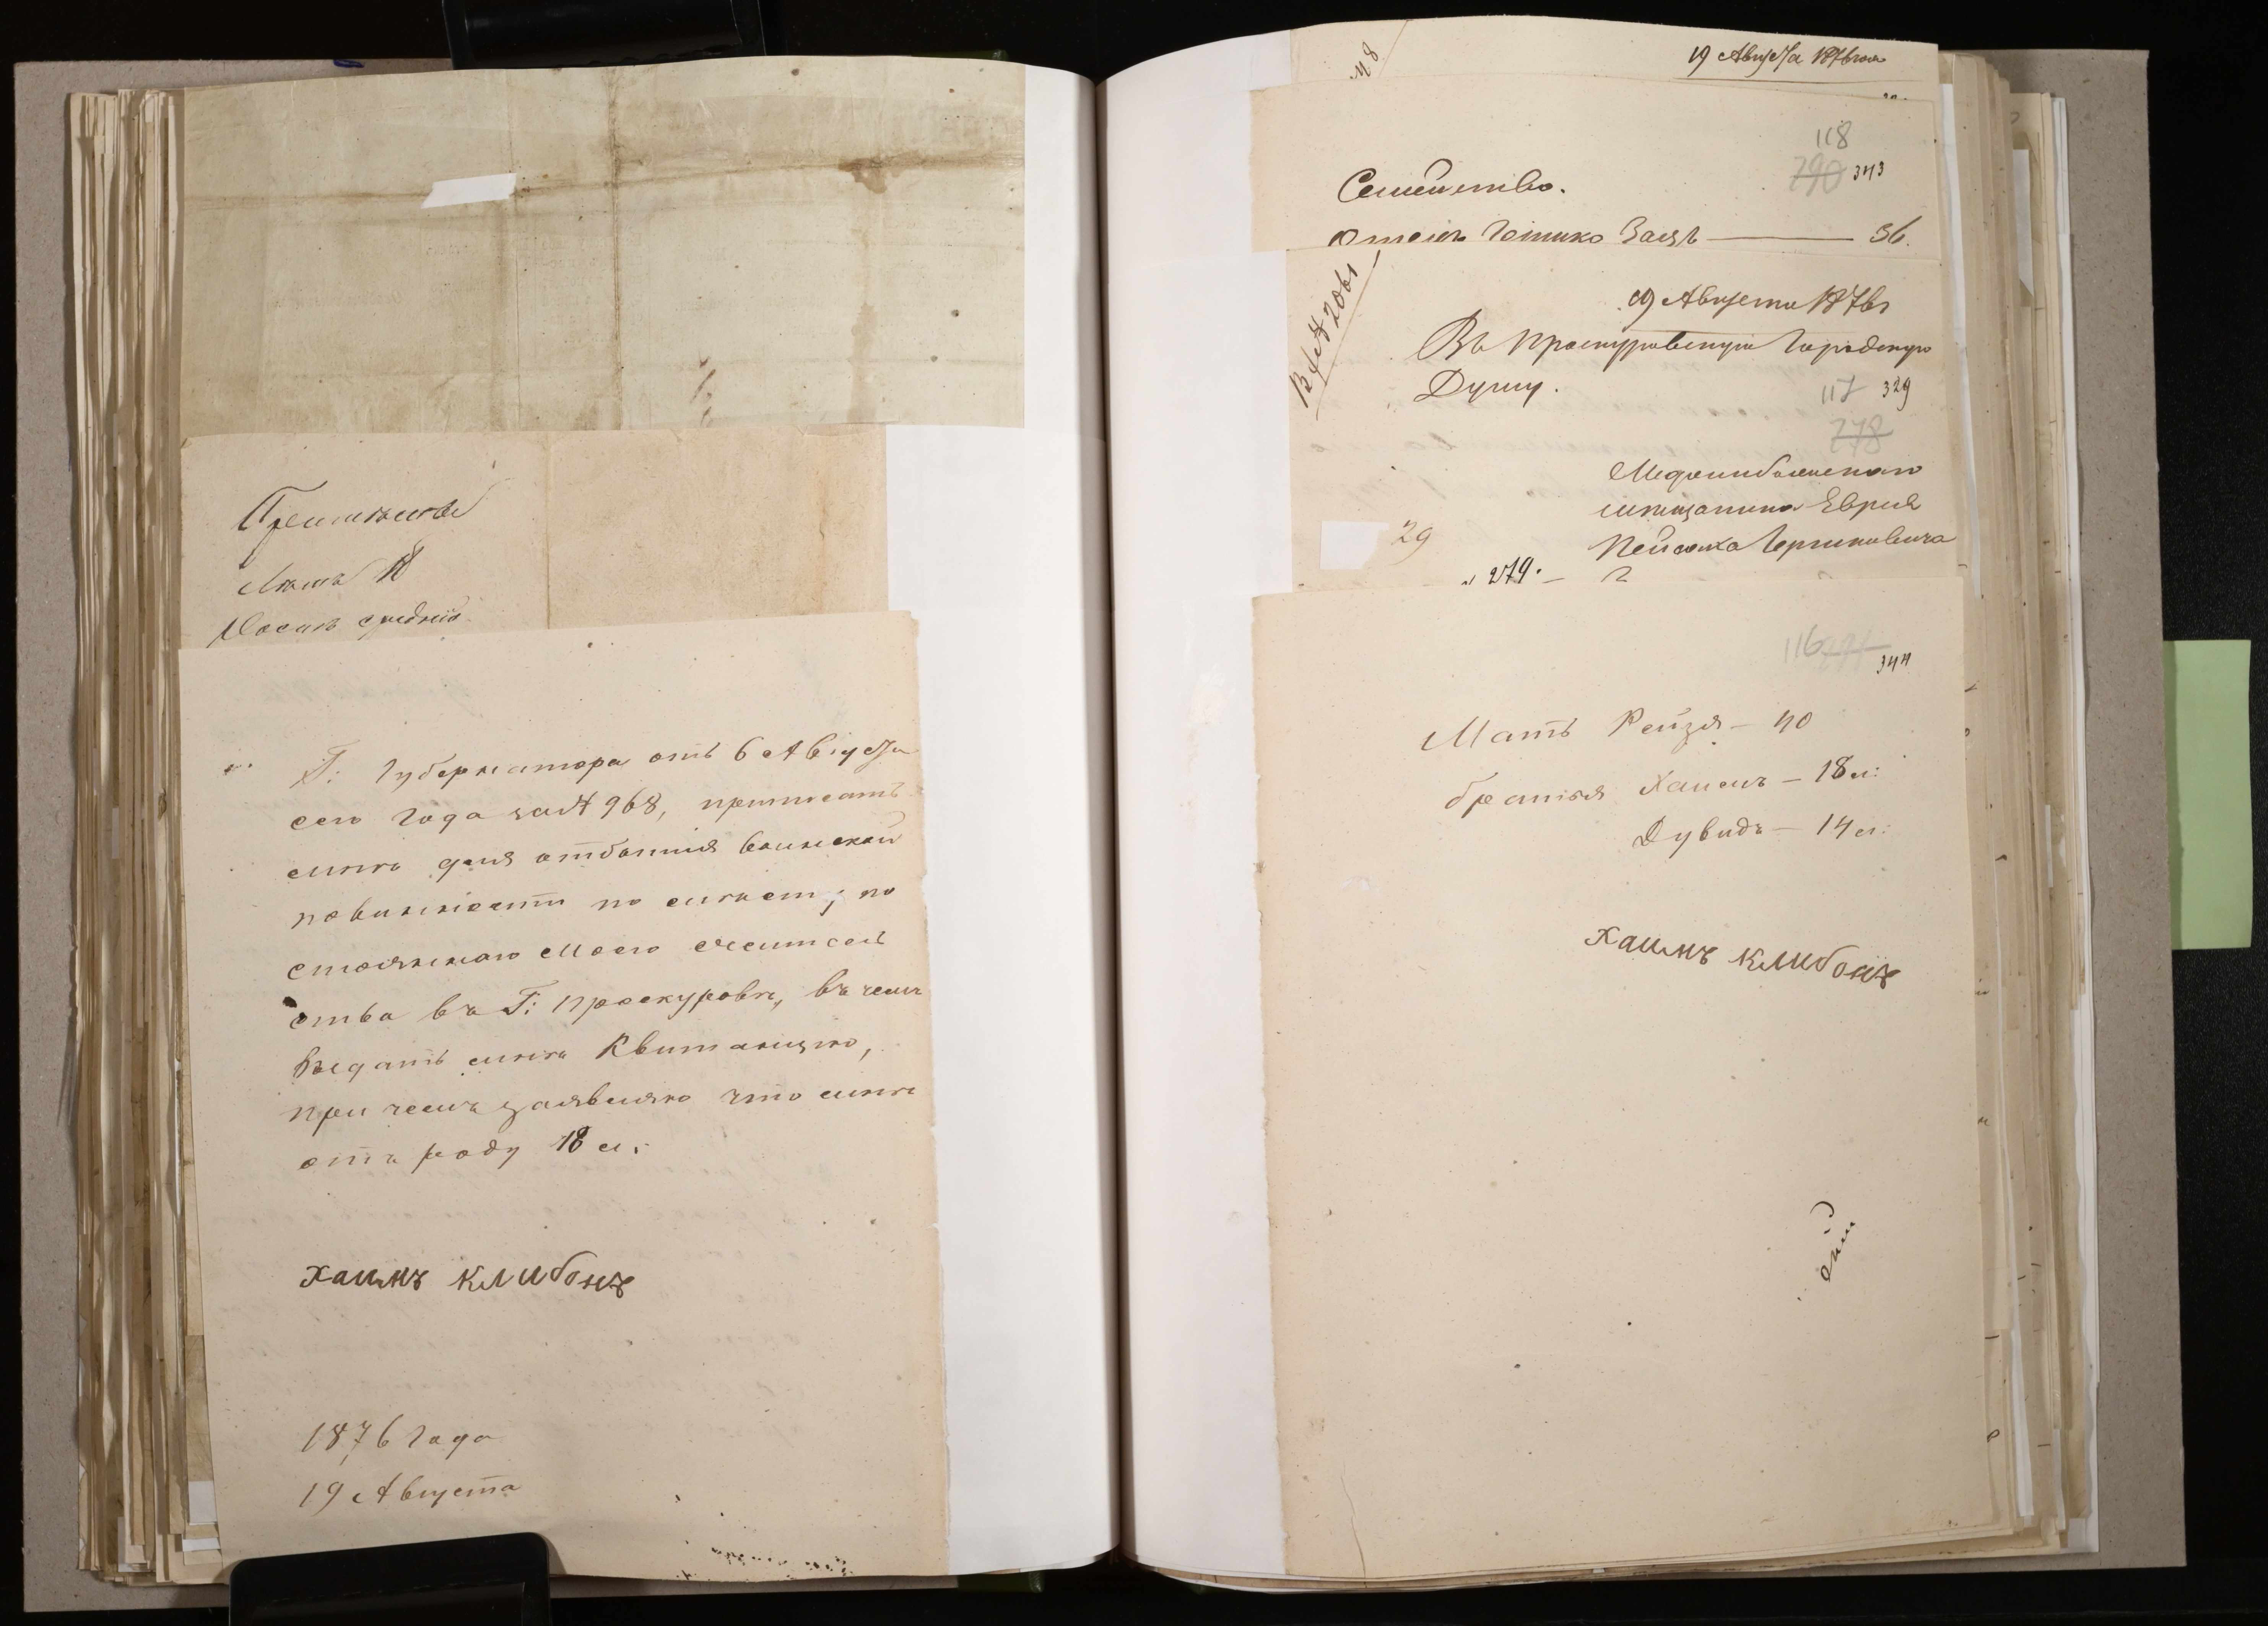 Приметы
Летъ 18
Росту средній
Г: Губернатора отъ 6 Августа
сего года за № 968, приписать
мнѣ для отбытія воинской
повинности по мѣсту по
стояннаго моего жител
ства въ Г: Проскуровѣ, въ чемъ
выдать мнѣ Квитанцію,
при чемъ заявляю что мнѣ
отъ роду 18 л:
Хаимъ Клибонъ
1876 года
19 Августа
48
19 Августа 1876 года
118
290 343
Семейство.
Отецъ Іошико Заязъ — 56.
19 Августа 1876 г
Вх № 2061
Въ Проскуровскую Городскую
Думу.
117 329
278
Меджибожскаго
мѣщанина Еврея
Пейсаха Гершковича
29
279.
116
344
Мать Рейзя — 40
братья Хаимъ — 18 л:
Дувидъ — 14 л:
Хаимъ Клибонъ